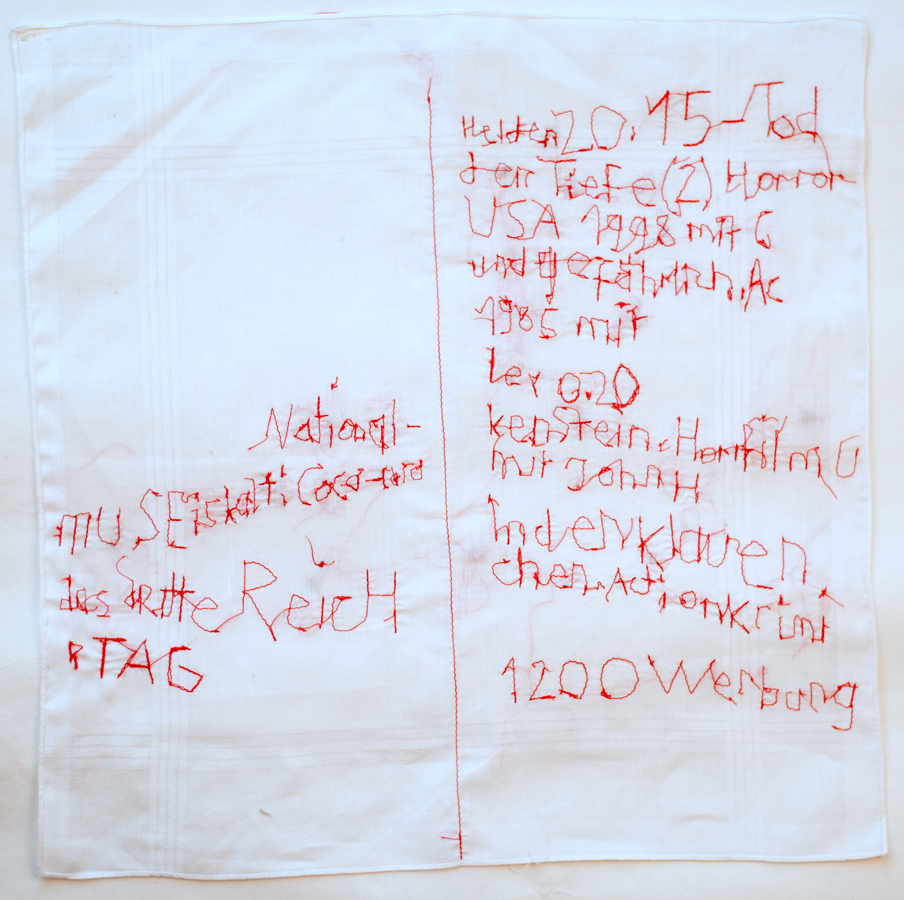 National-
MUSEiskalt: Coca-
das dritte ReicH
RTAG
Helden 20.15-Tod
der Tiefe(2) Horror
USA 1998 mit G
und gefährlich.Ac
1985 mit
Ler 0.20
kenstein.Horrfilm, U
mit JohnH
In den Klauen
chen.Actionkrimi
1200 Werbung